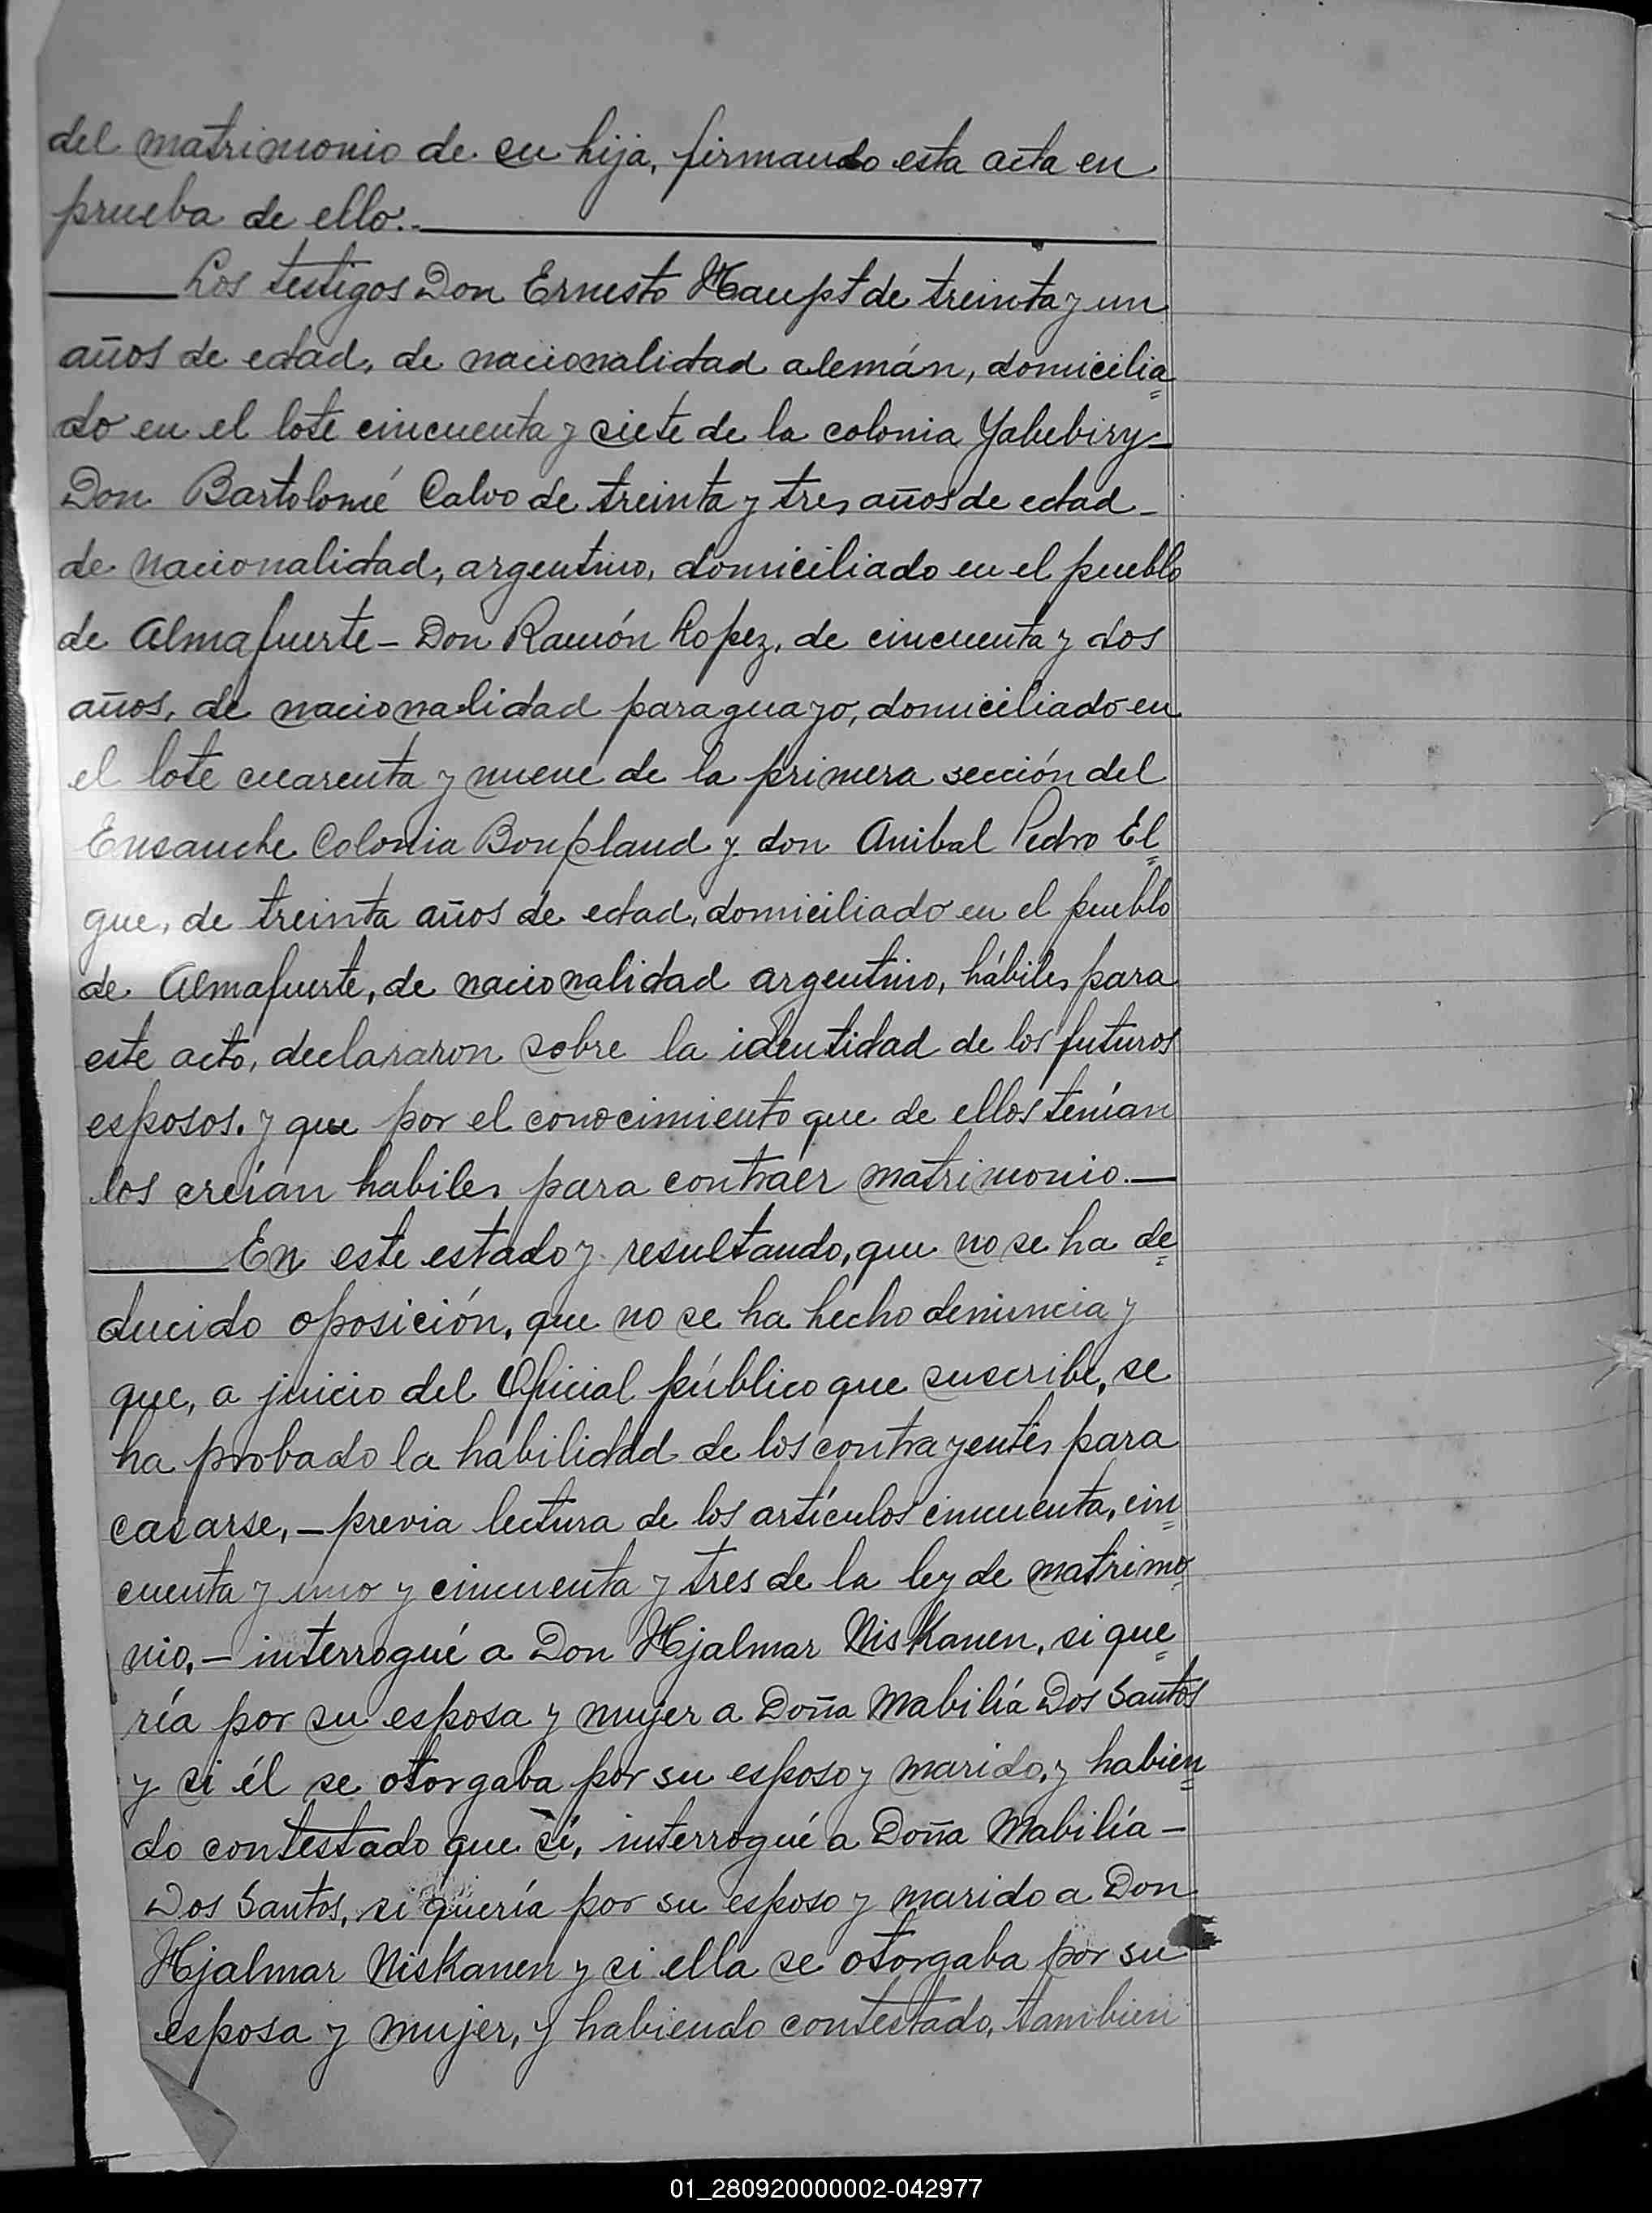 del matrimonio de su hija, firmando esta acta en
prueba de ello.-
Los testigos Don Ernesto Haupt de treinta y un
años de edad, de nacionalidad alemán, domicilia=
do en el lote cincuenta y siete de la colonia Yabebiry-
Don Bartolomé Calvo de treinta y tres años de edad-
de nacionalidad, argentino, domiciliado en el pueblo
de Almafuerte- Don Ramón Lopez, de cincuenta y dos
años, de nacionalidad paraguayo, domiciliado en
el lote cuarenta y nueve de la primera sección del
Ensanche Colonia Bonpland y don Anibal Pedro El=
gue, de treinta años de edad, domiciliado en el pueblo
de Almafuerte, de nacionalidad argentino, hábiles para
este acto, declararon sobre la identidad de los futuros
esposos. y que por el conocimiento que de ellos tenían
los creían habiles para contraer matrimonio.—
En este estado y resultando, que no se ha de=
ducido oposición, que no se ha hecho denuncia y
que, a juicio del Oficial público que suscribe, se
ha probado la habilidad de los contrayentes para
casarse,- previa lectura de los artículos cincuenta, cin=
cuenta y uno y cincuenta y tres de la ley de matrimo=
nio,- interrogué a Don Hjalmar Niskanen, si que=
ría por su esposa y mujer a Doña Mabilía Dos Santos
y si él se otorgaba por su esposo y marido, y habien=
do contestado que sí, interrogué a Doña Mabilía-
Dos Santos, si quería por su esposo y marido a Don
Hjalmar Niskanen y si ella se otorgaba por su
esposa y mujer, y habiendo contestado, tambien
01_280920000002-042977